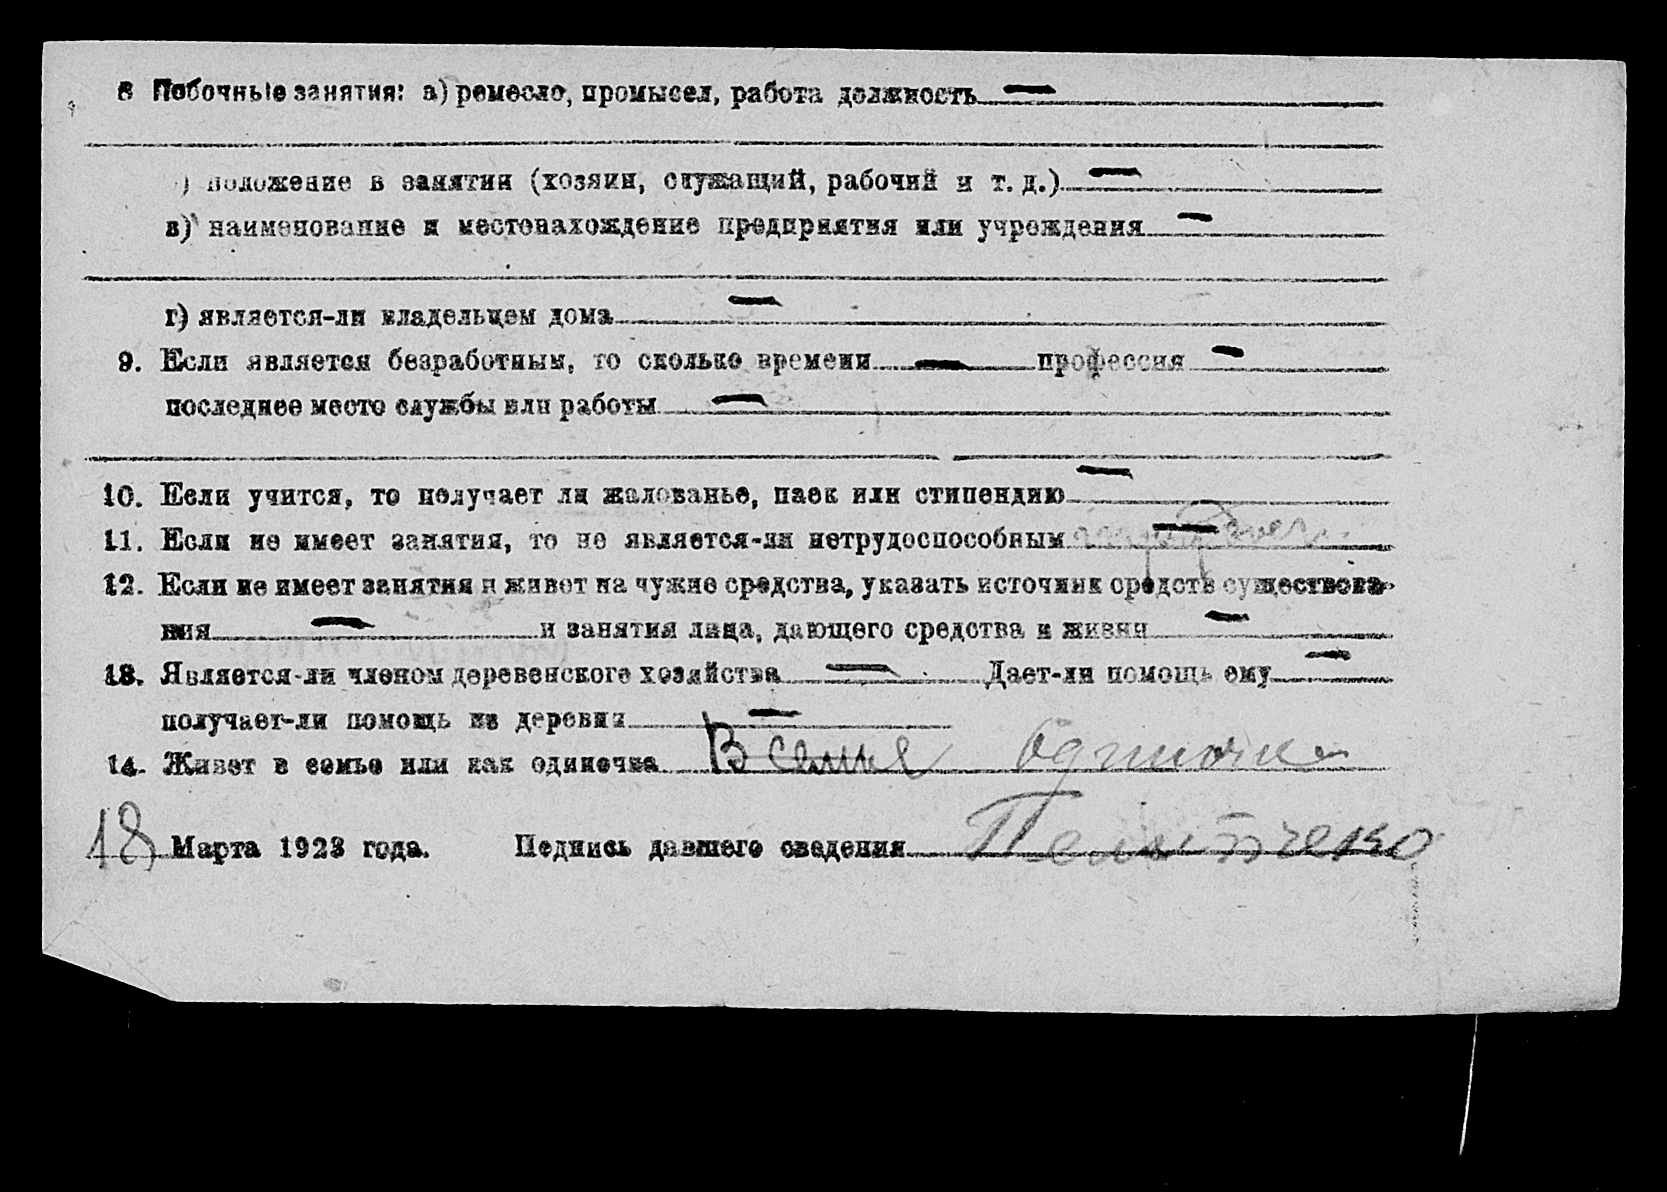 8 Побочные занятия: а) ремесло, промысел, работа должность —
) положение в занятии (хозяин, служащий, рабочий и т. д.) —
в) наименование и местонахождение предприятия или учреждения —
г) является-ли владельцем дома —
9. Если является безработным, то сколько времени — профессия —
последнее место службы или работы —
10. Если учится, то получает ли жалованье, паек или стипендию —
11. Если не имеет занятия, то не является-ли нетрудоспособным —
12. Если не имеет занятия и живет на чужие средства, указать источник средств существова-
ния — и занятия лица, дающего средства к жизни —
13. Является-ли членом деревенского хозяйства — Дает-ли помощь ему —
получает-ли помощь из деревни —
14. Живет в семье или как одиночка В семье Одиночка
18 Марта 1923 года. Подпись давшего сведения